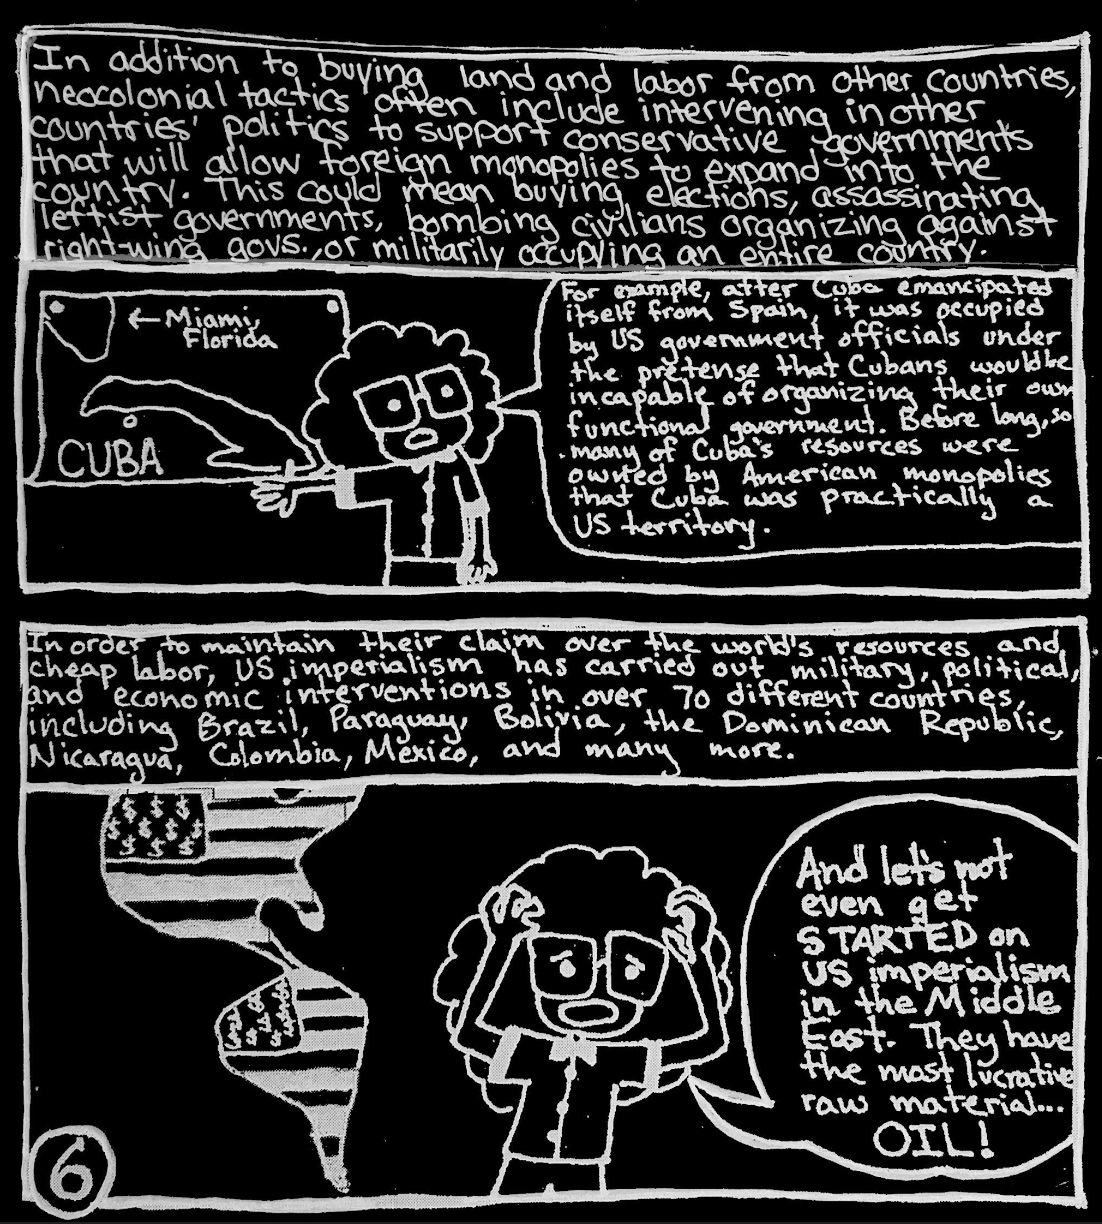 In addition to buying land and labor from other countries,
neocolonial tactics often include intervening in other
countries' politics to support conservative governments
that will allow foreign monopolies to expand into the
country. This could mean buying elections, assassinating
leftist governments, bombing civilians organizing against
right-wing govs., or militarily occupying an entire country.
← Miami,
Florida
CUBA
For example, after Cuba emancipated
itself from Spain, it was occupied
by US government officials under
the pretense that Cubans would be
incapable of organizing their own
functional government. Before long, so
many of Cuba's resources were
owned by American monopolies
that Cuba was practically a
US territory.
In order to maintain their claim over the world's resources and
cheap labor, US imperialism has carried out military, political,
and economic interventions in over 70 different countries,
including Brazil, Paraguay, Bolivia, the Dominican Republic,
Nicaragua, Colombia, Mexico, and many more.
$ $ $
$ $ $ $
$ $ $
And let's not
even get
STARTED on
US imperialism
in the Middle
East. They have
the most lucrative
raw material...
OIL!
6